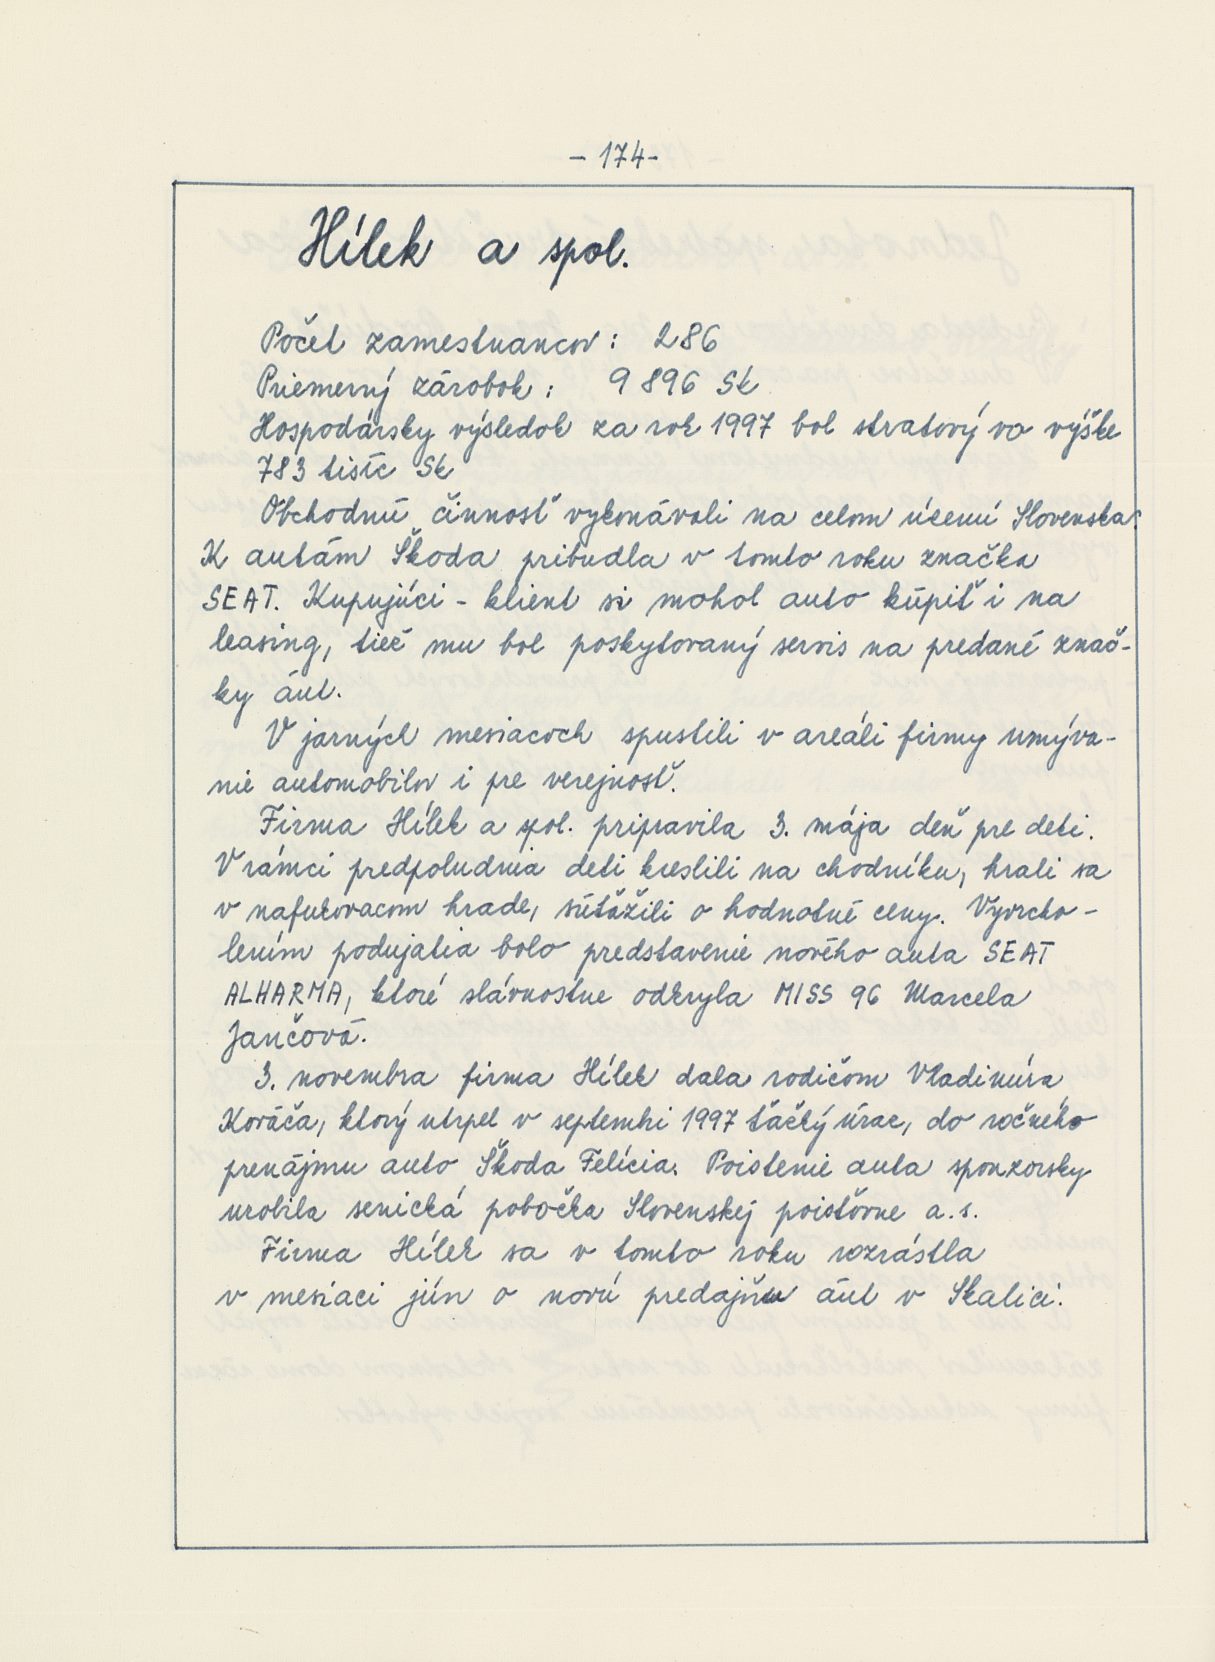 - 174 -
Hílek a spol.
Počet zamestnancov : 286
Priemerný zárobok : 9 896 Sk
Hospodársky výsledok za rok 1997 bol stratový vo výške
783 tisíc Sk
Obchodnú činnosť vykonávali na celom území Slovenska.
K autám Škoda pribudla v tomto roku značka
SEAT. Kupujúci - klient si mohol auto kúpiť i na
leasing, tiež mu bol poskytovaný servis na predané znač-
ky áut.
V jarných mesiacoch spustili v areáli firmy umýva-
nie automobilov i pre verejnosť.
Firma Hílek a spol. pripravila 3. mája deň pre deti.
V rámci predpoludnia deti kreslili na chodníku, hrali sa
v nafukovacom hrade, súťažili o hodnotné ceny. Vyvrcho-
lením podujatia bolo predstavenie nového auta SEAT
ALHARMA, ktoré slávnostne odkryla MISS 96 Marcela
Jančová.
3. novembra firma Hílek dala rodičom Vladimíra
Kováča, ktorý utrpel v septembri 1997 ťažký úraz, do ročného
prenájmu auto Škoda Felícia. Poistenie auta sponzorsky
urobila senická pobočka Slovenskej poisťovne a.s.
Firma Hílek sa v tomto roku rozrástla
v mesiaci jún o novú predajňu áut v Skalici.